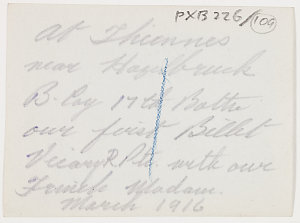 PXB 226/109
At Thiennes
near Hazelbruck
B. Coy 17th Battn
our first Billet
Vicary R Pte. with our
French Madam.
March 1916